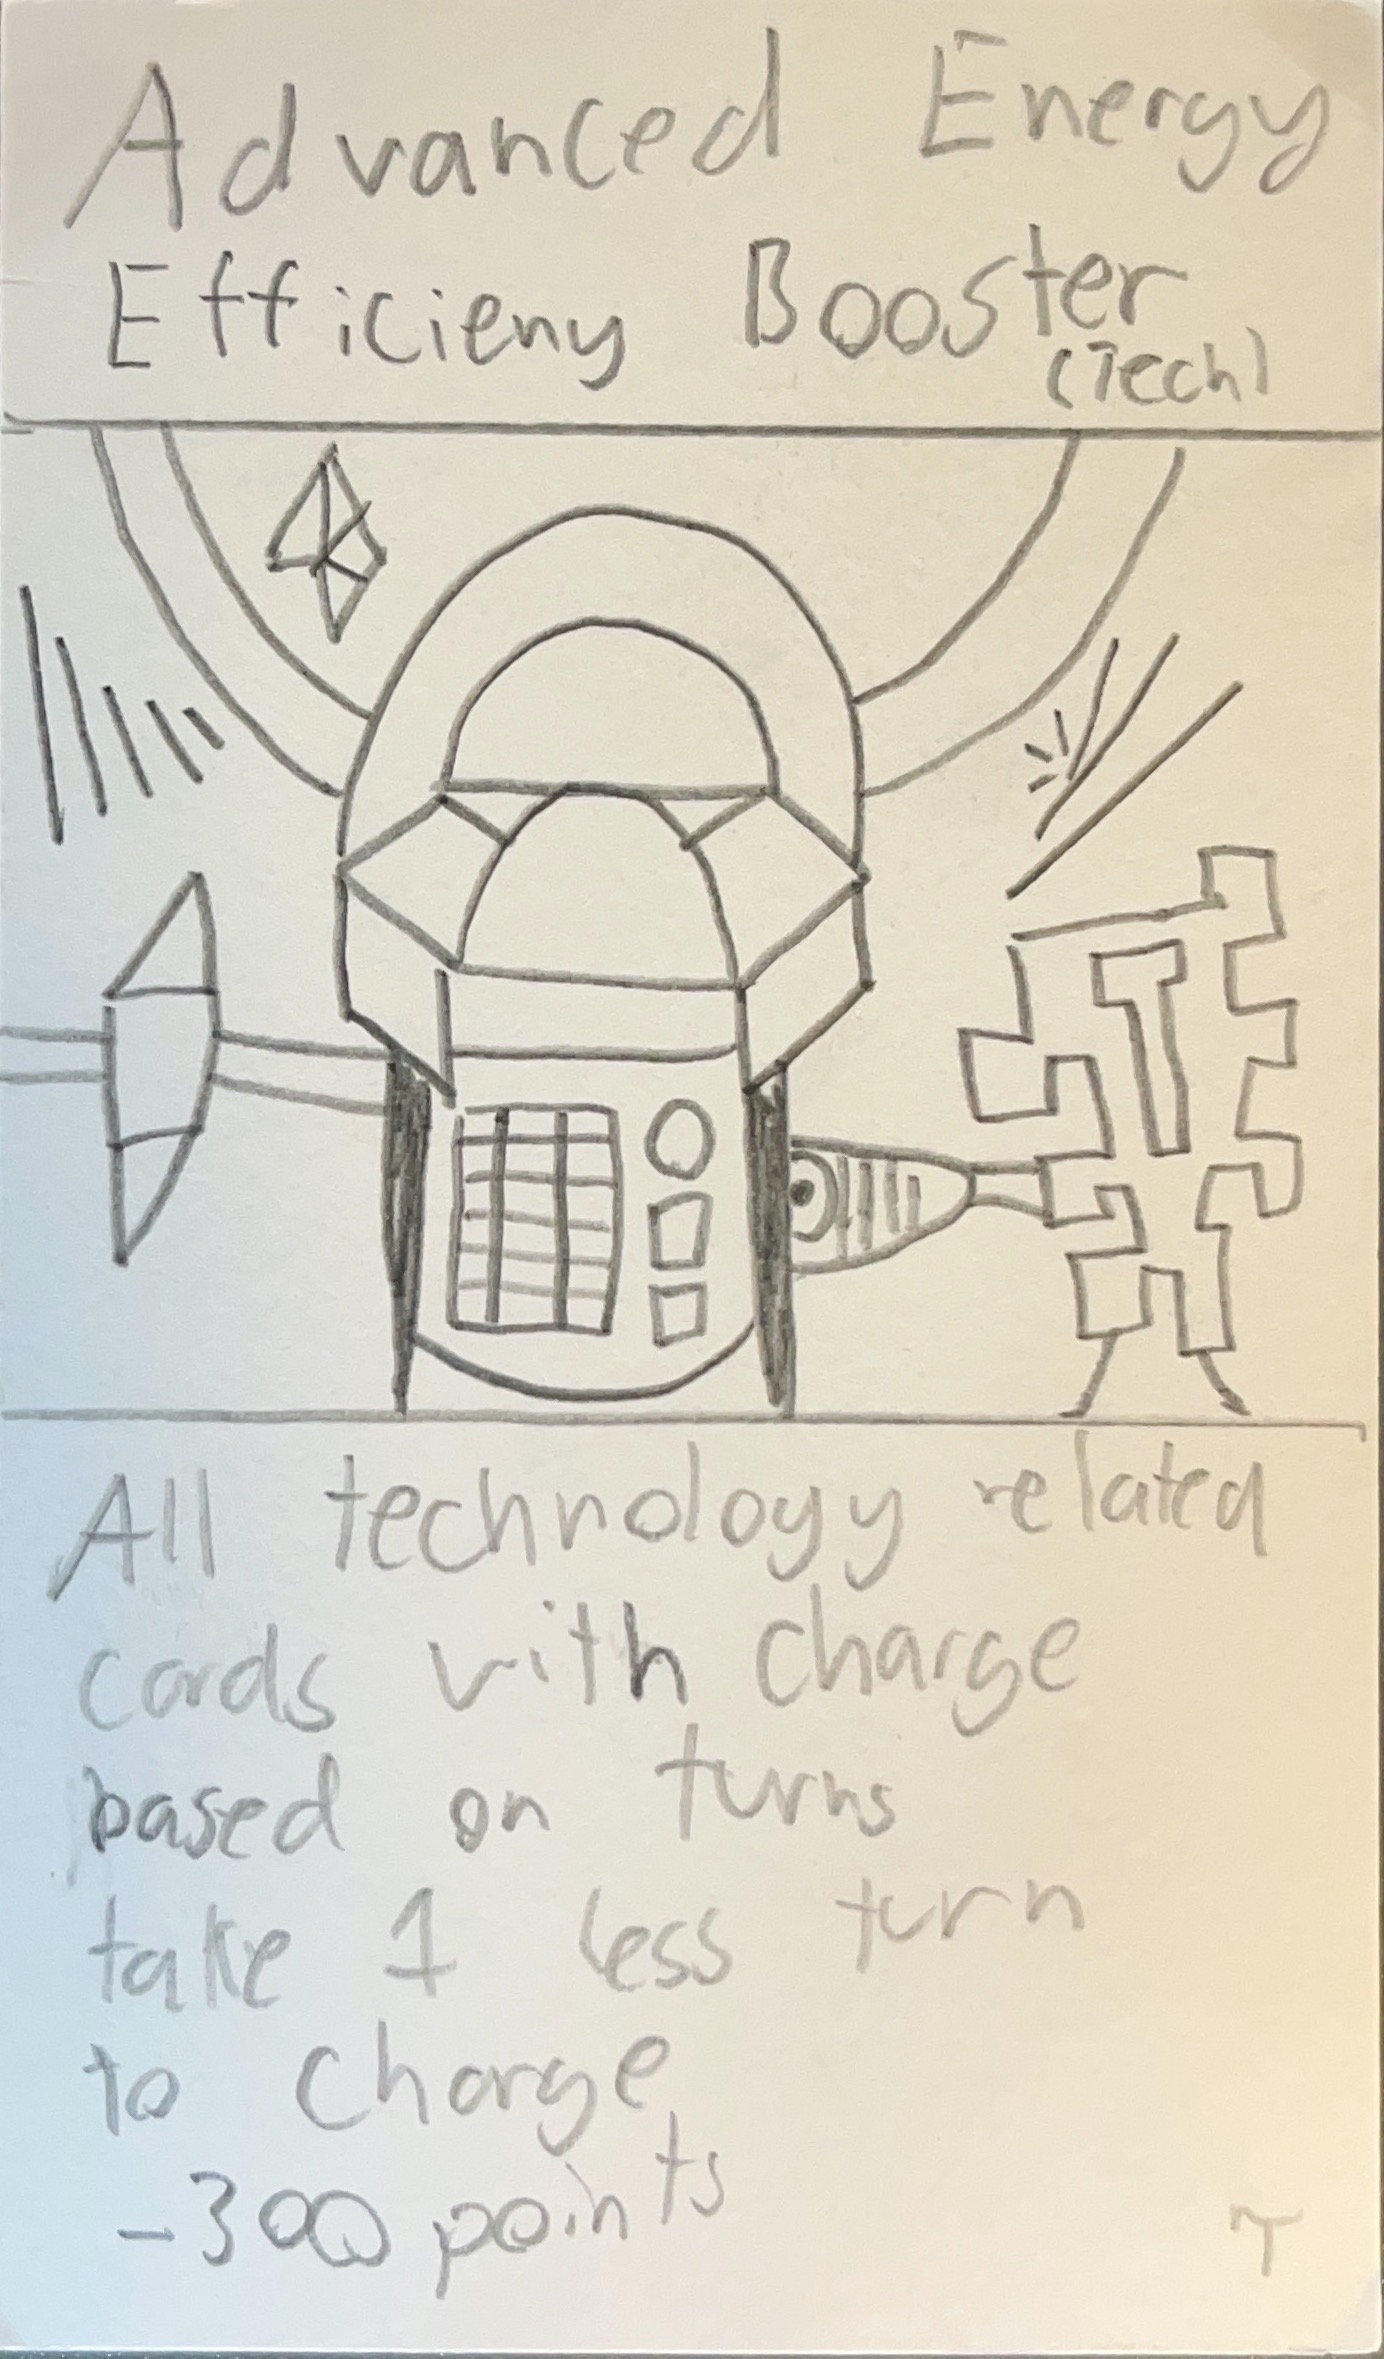 Advanced Energy
Efficieny Booster
(Tech)
All technology related
cards with charge
based on turns
take 1 less turn
to charge
-300 points
T